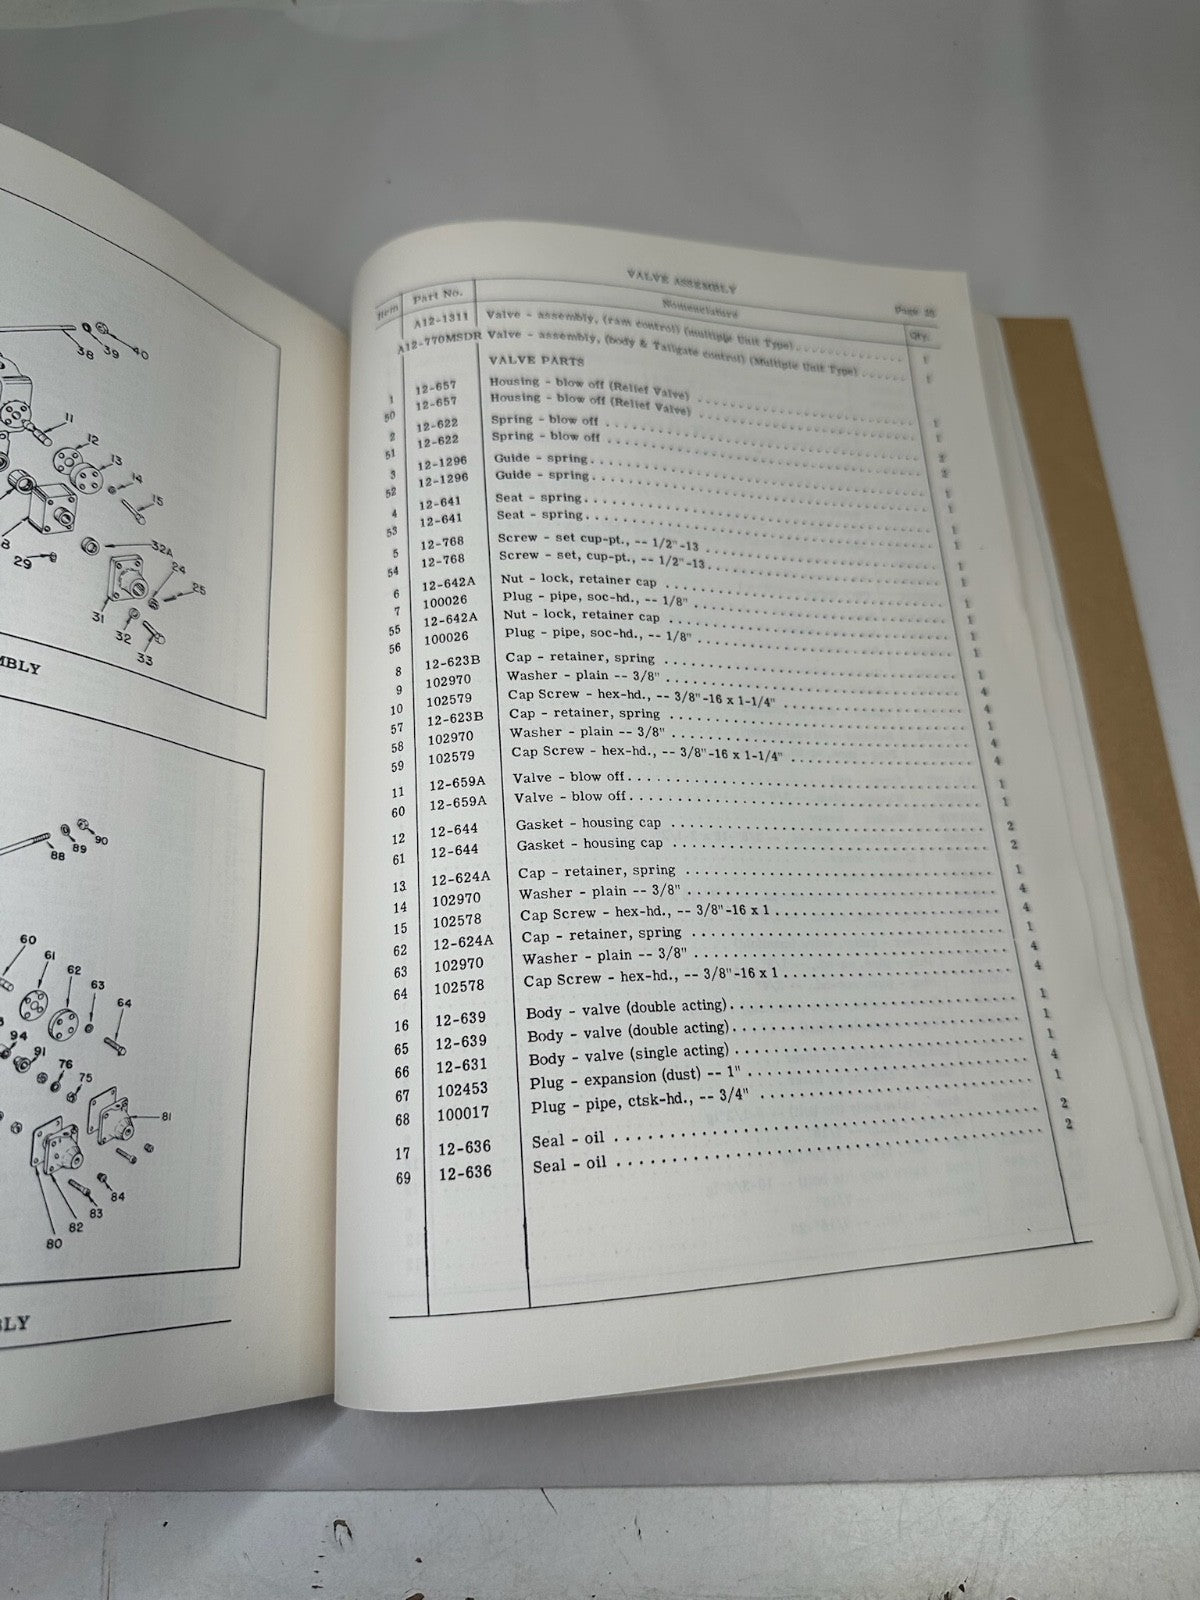 38
39
40
11
12
13
14
15
8
29
32A
24
25
31
32
33
MBLY
88
89
90
60
61
62
63
64
94
91
76
75
81
84
83
82
80
BLY
VALVE ASSEMBLY
Item Part No. Nomenclature Page Qty.
A12-1311 Valve - assembly, (ram control) (multiple Unit Type) 1
A12-770MSDR Valve - assembly, (body & Tailgate control) (Multiple Unit Type) 1
VALVE PARTS
1 12-657 Housing - blow off (Relief Valve) 1
50 12-657 Housing - blow off (Relief Valve) 1
2 12-622 Spring - blow off 2
51 12-622 Spring - blow off 2
3 12-1296 Guide - spring 1
52 12-1296 Guide - spring 1
4 12-641 Seat - spring 1
53 12-641 Seat - spring 1
5 12-768 Screw - set cup-pt., -- 1/2"-13 1
54 12-768 Screw - set, cup-pt., -- 1/2"-13 1
6 12-642A Nut - lock, retainer cap 1
7 100026 Plug - pipe, soc-hd., -- 1/8" 1
55 12-642A Nut - lock, retainer cap 1
56 100026 Plug - pipe, soc-hd., -- 1/8" 1
8 12-623B Cap - retainer, spring 1
9 102970 Washer - plain -- 3/8" 4
10 102579 Cap Screw - hex-hd., -- 3/8"-16 x 1-1/4" 4
57 12-623B Cap - retainer, spring 1
58 102970 Washer - plain -- 3/8" 4
59 102579 Cap Screw - hex-hd., -- 3/8"-16 x 1-1/4" 4
11 12-659A Valve - blow off 1
60 12-659A Valve - blow off 1
12 12-644 Gasket - housing cap 2
61 12-644 Gasket - housing cap 2
13 12-624A Cap - retainer, spring 1
14 102970 Washer - plain -- 3/8" 4
15 102578 Cap Screw - hex-hd., -- 3/8"-16 x 1 4
62 12-624A Cap - retainer, spring 1
63 102970 Washer - plain -- 3/8" 4
64 102578 Cap Screw - hex-hd., -- 3/8"-16 x 1 4
16 12-639 Body - valve (double acting) 1
65 12-639 Body - valve (double acting) 1
66 12-631 Body - valve (single acting) 1
67 102453 Plug - expansion (dust) -- 1" 4
68 100017 Plug - pipe, ctsk-hd., -- 3/4" 1
17 12-636 Seal - oil 2
69 12-636 Seal - oil 2